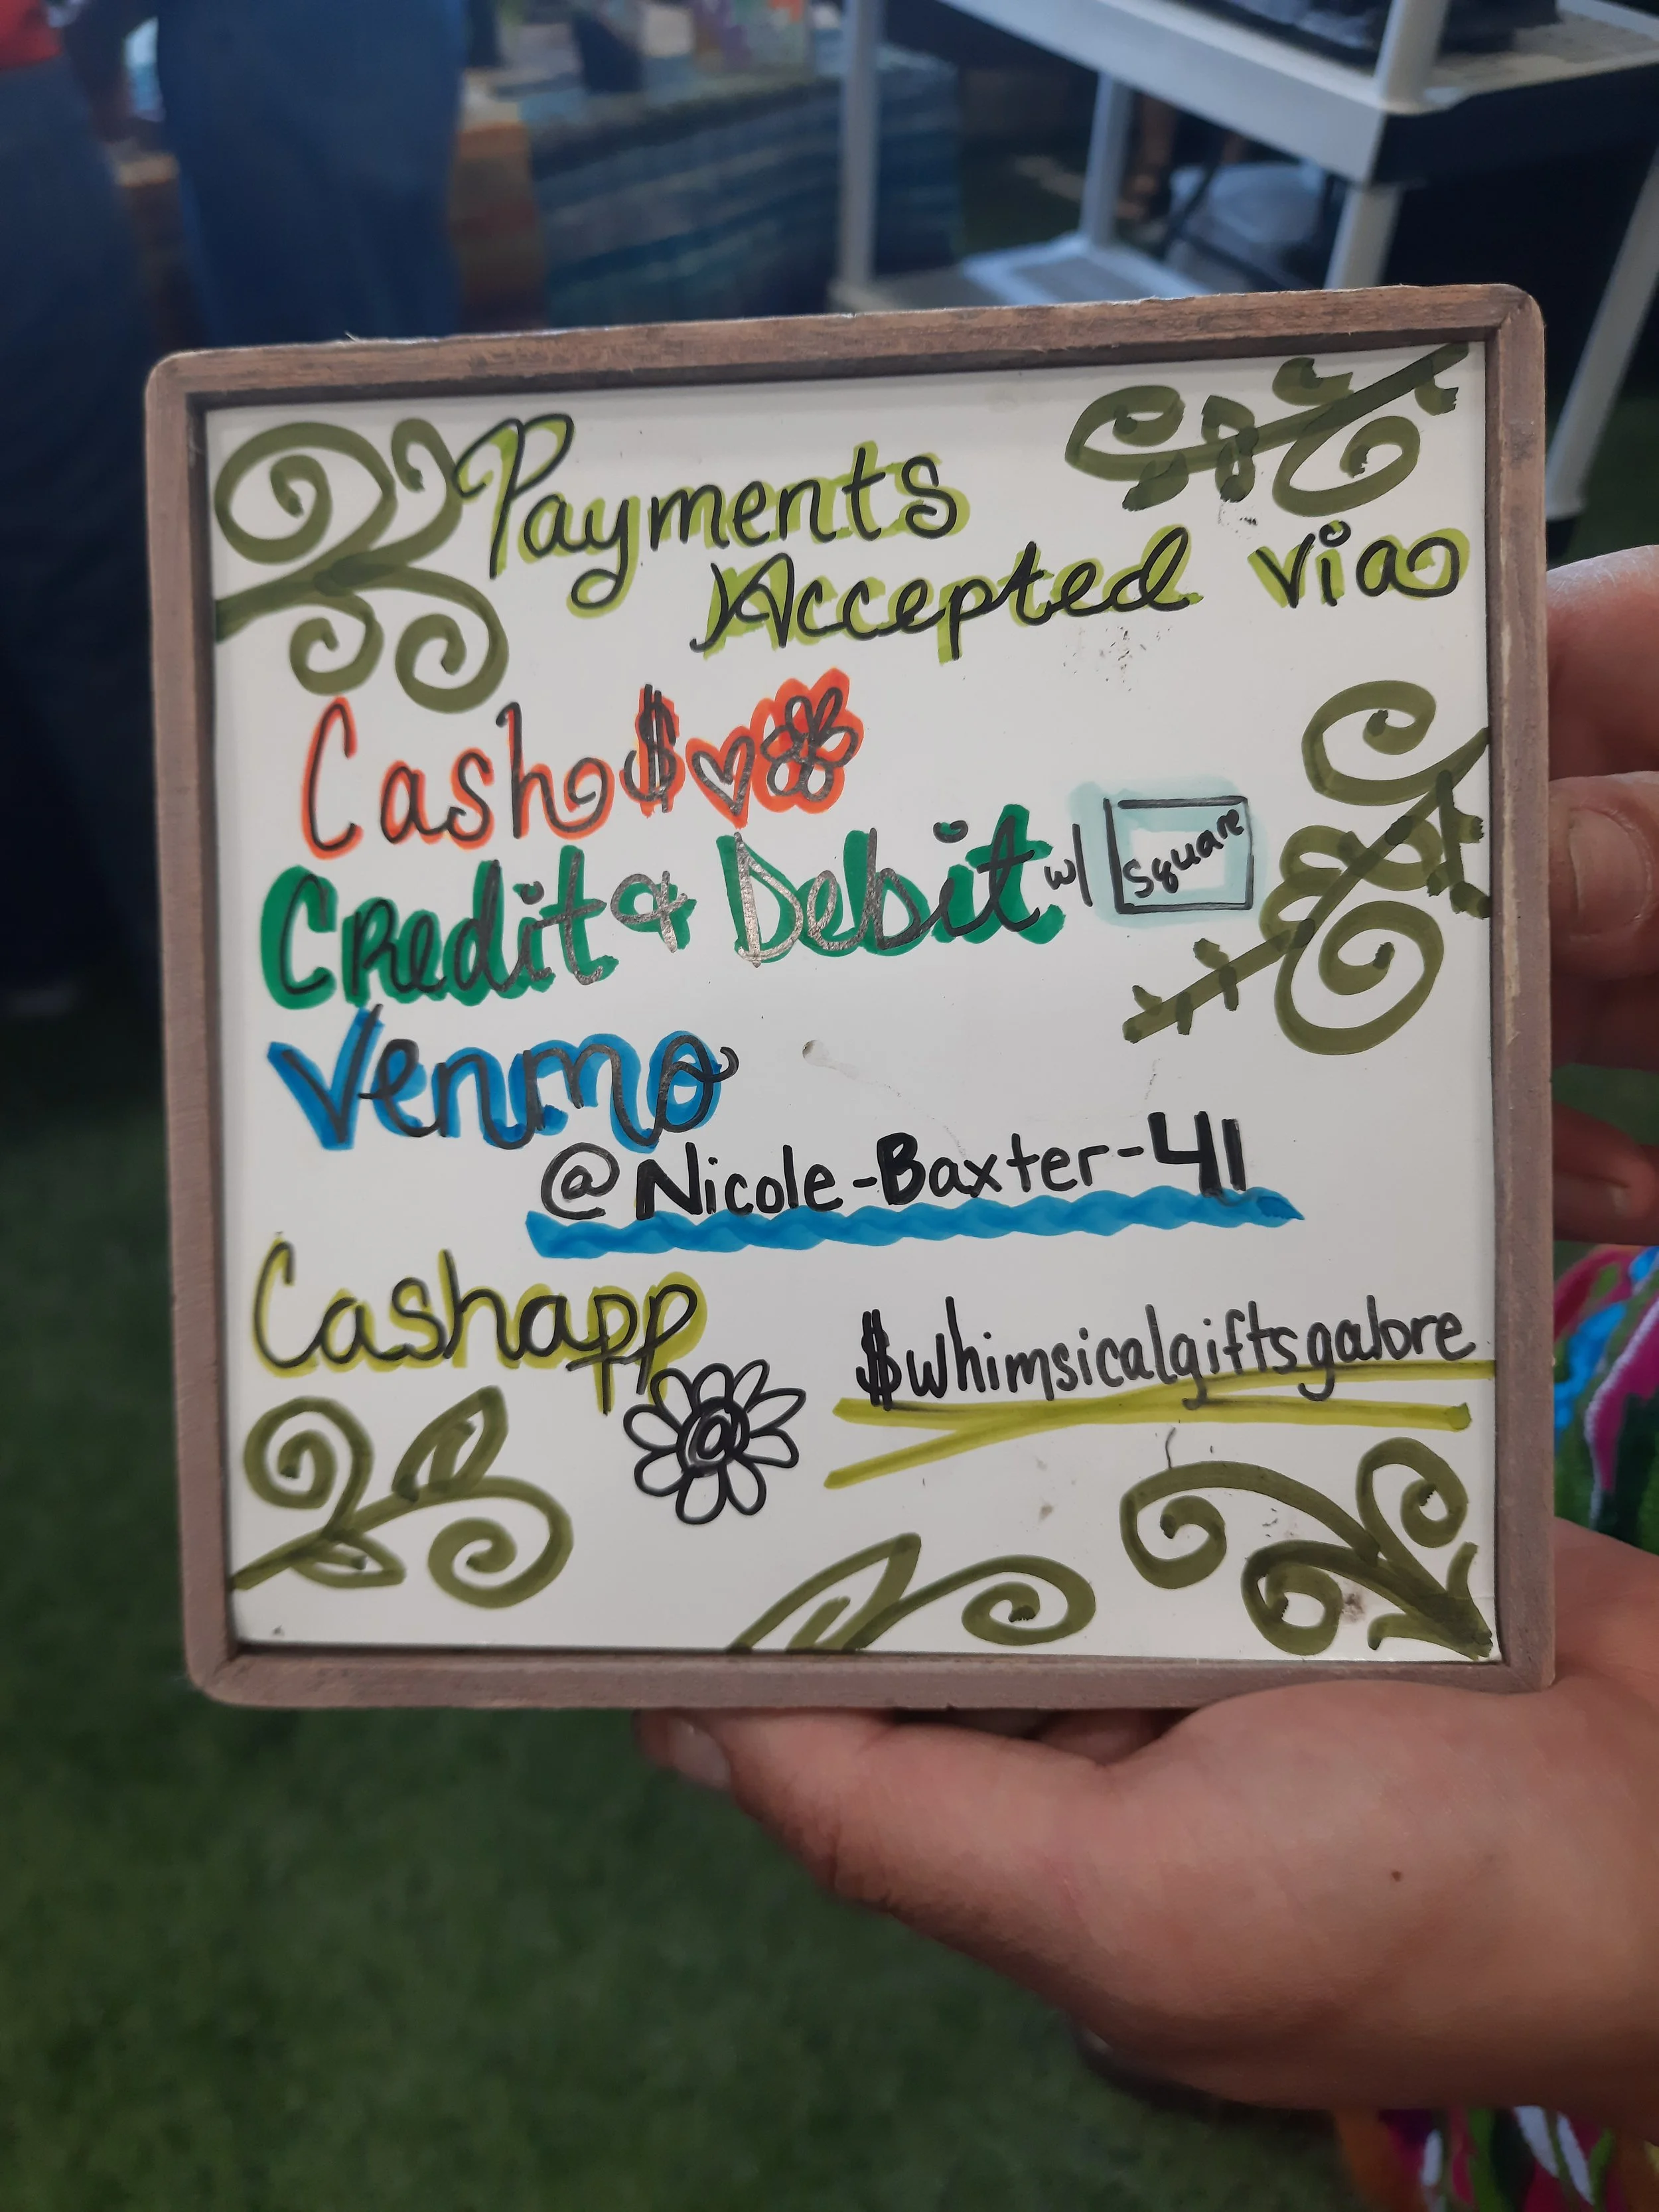 Payments
Accepted via
Cash $
Credit & Debit w/ Square
Venmo
@Nicole-Baxter-41
Cashapp
$whimsicalgiftsgalore